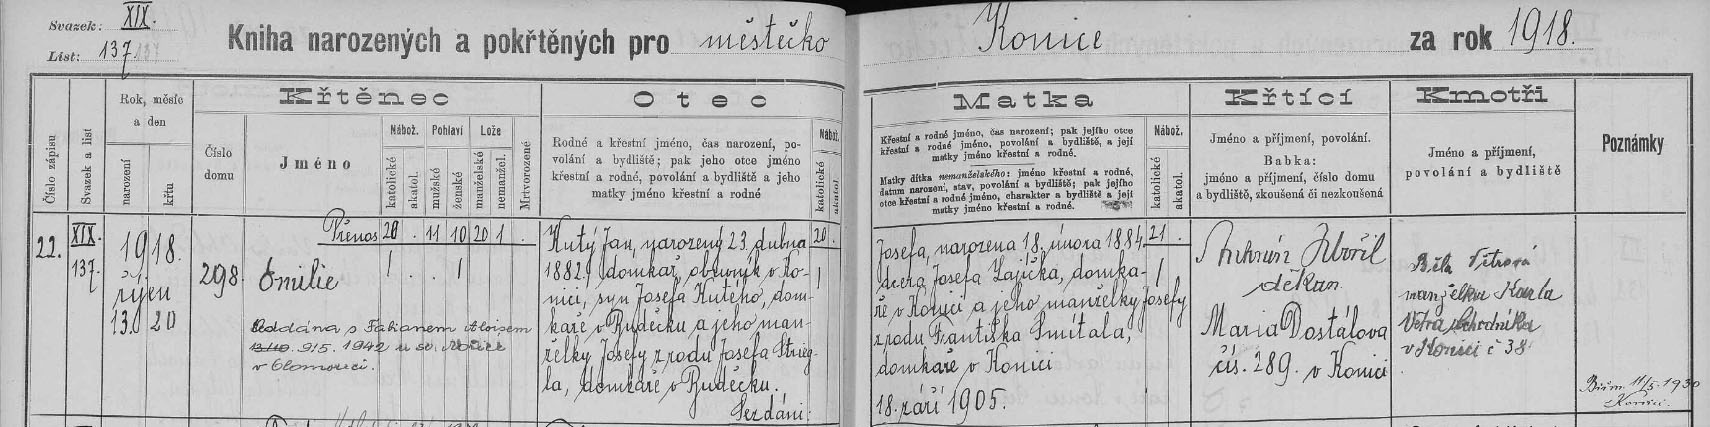 Svazek: XIX.
List: 137.
Kniha narozených a pokřtěných pro městečko Konice za rok 1918.
Číslo zápisu
Svazek a list
Rok, měsíc
a den
narození
křtu
Křtěnec
Číslo
domu
Jméno
Nábož.
katolické
akatol.
Pohlaví
mužské
ženské
Lože
manželské
nemanžel.
Mrtvorozené
Otec
Rodné a křestní jméno, čas narození, po-
volání a bydliště; pak jeho otce jméno
křestní a rodné, povolání a bydliště a jeho
matky jméno křestní a rodné
Nábož.
katolické
akatol.
Matka
Křestní a rodné jméno, čas narození; pak jejího otce
křestní a rodné jméno, povolání a bydliště, a její
matky jméno křestní a rodné.
Matky dítka nemanželského: jméno křestní a rodné,
datum narození, stav, povolání a bydliště; pak jejího
otce křestní a rodné jméno, charakter a bydliště a její
matky jméno křestní a rodné.
Nábož.
katolické
akatol.
Křtící
Jméno a příjmení, povolání.
Babka:
jméno a příjmení, číslo domu
a bydliště, zkoušená či nezkoušená
Kmotři
Jméno a příjmení,
povolání a bydliště
Poznámky
Přenos 20 . 11 10 20 1 .
22.
XIX.
137.
1918.
říjen
13. 20
298.
Emilie
1 . . 1
Oddána s Fabianem Aloisem
9/5. 1942 u sv. Mořice
v Olomouci.
Kutý Jan, narozený 23. dubna
1882, domkař, obuvník v Ko-
nici, syn Josefa Kutého, dom-
kaře v Budečku a jeho man-
želky Josefy z rodu Josefa Strieg-
la, domkaře v Budečku.
Sezdáni:
20 .
1
Josefa, narozena 18. února 1884
dcera Josefa Zajíčka, domka-
ře v Konici a jeho manželky Josefy
z rodu Františka Smítala,
domkaře v Konici
18. září 1905.
21 .
1
Antonín Zbořil
děkan
Maria Dostálova
čís. 289. v Konici
Běla Vétrová
manželka Karla
Vétra obchodníka
v Konici č 38
Biřm. 11/5. 1930
Konici.